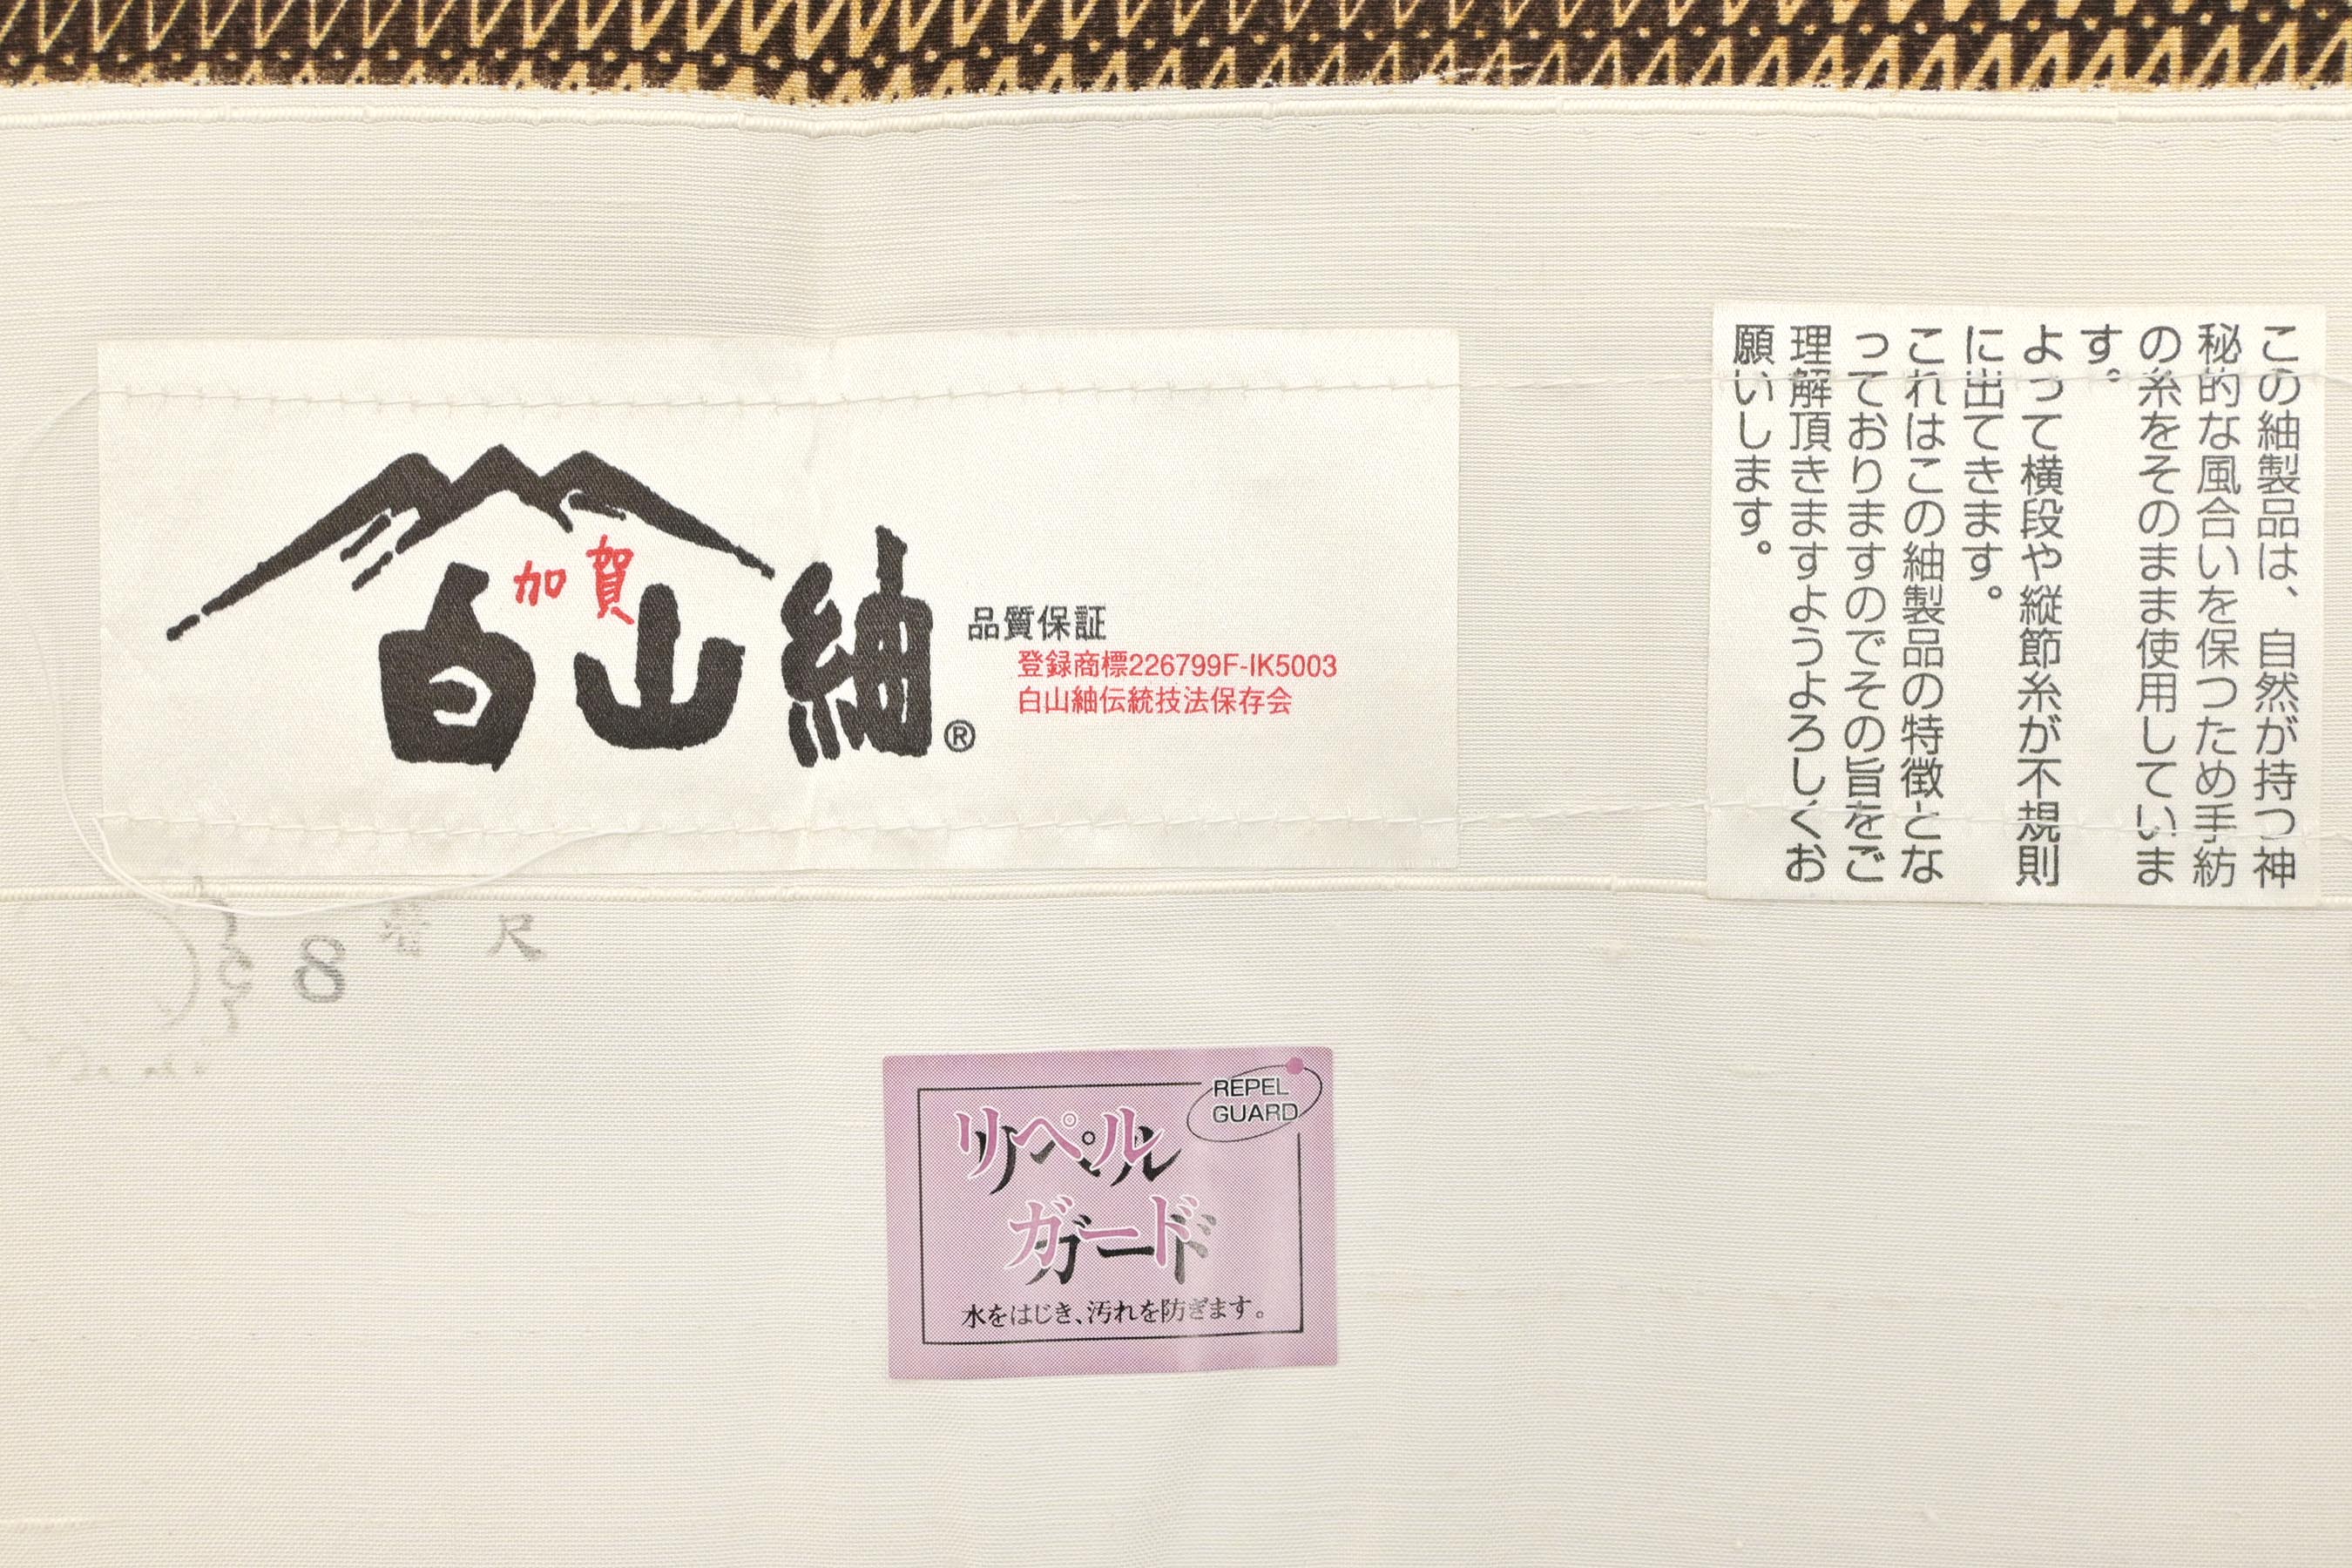 加賀
白山紬®
品質保証
登録商標226799F-IK5003
白山紬伝統技法保存会
この紬製品は、自然が持つ神
秘的な風合いを保つため手紡
の糸をそのまま使用していま
す。
よって横段や縦節糸が不規則
に出てきます。
これはこの紬製品の特徴とな
っておりますのでその旨をご
理解頂きますようよろしくお
願いします。
8
尺
REPEL
GUARD
リペル
ガード
水をはじき、汚れを防ぎます。